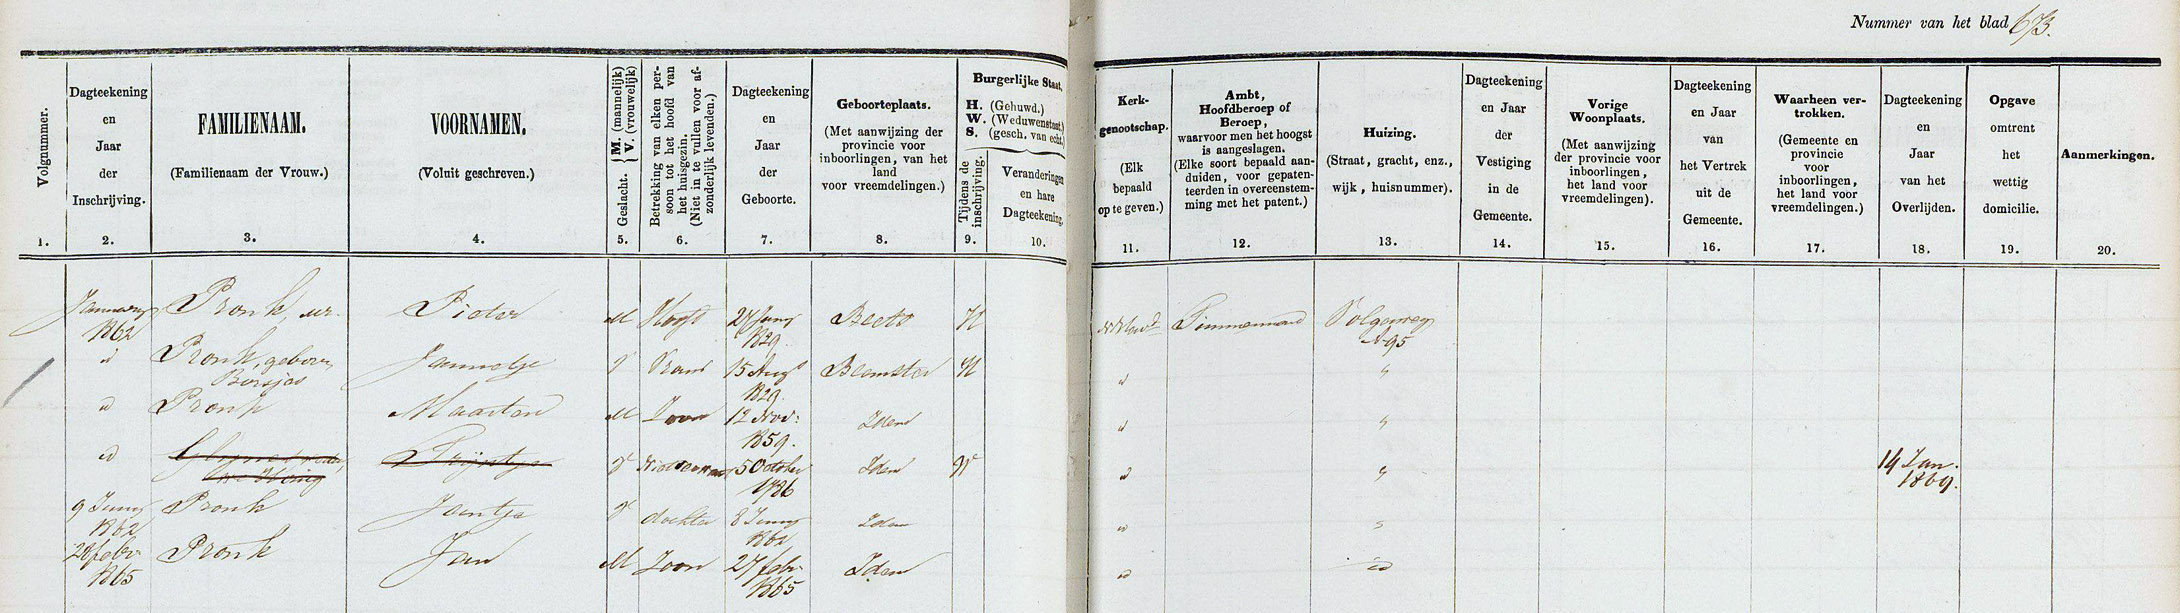 Nummer van het blad 673.
Volgnummer.
1.
Dagteekening
en
Jaar
der
Inschrijving.
2.
FAMILIENAAM.
(Familienaam der Vrouw.)
3.
VOORNAMEN.
(Voluit geschreven.)
4.
Geslacht. { M. (mannelijk)
V. (vrouwelijk)
5.
Betrekking van elken per-
soon tot het hoofd van
het huisgezin.
(Niet in te vullen voor af-
zonderlijk levenden.)
6.
Dagteekening
en
Jaar
der
Geboorte.
7.
Geboorteplaats.
(Met aanwijzing der
provincie voor
inboorlingen, van het
land
voor vreemdelingen.)
8.
Burgerlijke Staat.
H. (Gehuwd.)
W. (Weduwenstaat.)
S. (gesch. van echt.)
Tijdens de
inschrijving.
9.
Veranderingen
en hare
Dagteekening.
10.
Kerk-
genootschap.
(Elk
bepaald
op te geven.)
11.
Ambt,
Hoofdberoep of
Beroep,
waarvoor men het hoogst
is aangeslagen.
(Elke soort bepaald aan-
duiden, voor gepaten-
teerden in overeenstem-
ming met het patent.)
12.
Huizing.
(Straat, gracht, enz.,
wijk, huisnummer).
13.
Dagteekening
en Jaar
der
Vestiging
in de
Gemeente.
14.
Vorige
Woonplaats.
(Met aanwijzing
der provincie voor
inboorlingen,
het land voor
vreemdelingen).
15.
Dagteekening
en Jaar
van
het Vertrek
uit de
Gemeente.
16.
Waarheen ver-
trokken.
(Gemeente en
provincie
voor
inboorlingen,
het land voor
vreemdelingen.)
17.
Dagteekening
en
Jaar
van het
Overlijden.
18.
Opgave
omtrent
het
wettig
domicilie.
19.
Aanmerkingen.
20.
January Pronk, Pieter M Hoofd 27 Juny Beets H Timmerman Volgerweg
1862 1829. N 95
id Pronk, geboren Jannetje V Vrouw 15 Aug Beemster H id "
1829.
id Pronk Maarten M Zoon 12 Nov: Idem id "
1859.
id Trijntje V 5 October Idem W id " 14 Jan.
1786 1869.
9 Juny Pronk Jantje V dochter 8 Juny Idem id "
1862 1862
28 febr Pronk Jan M Zoon 27 febr Idem id id
1865 1865